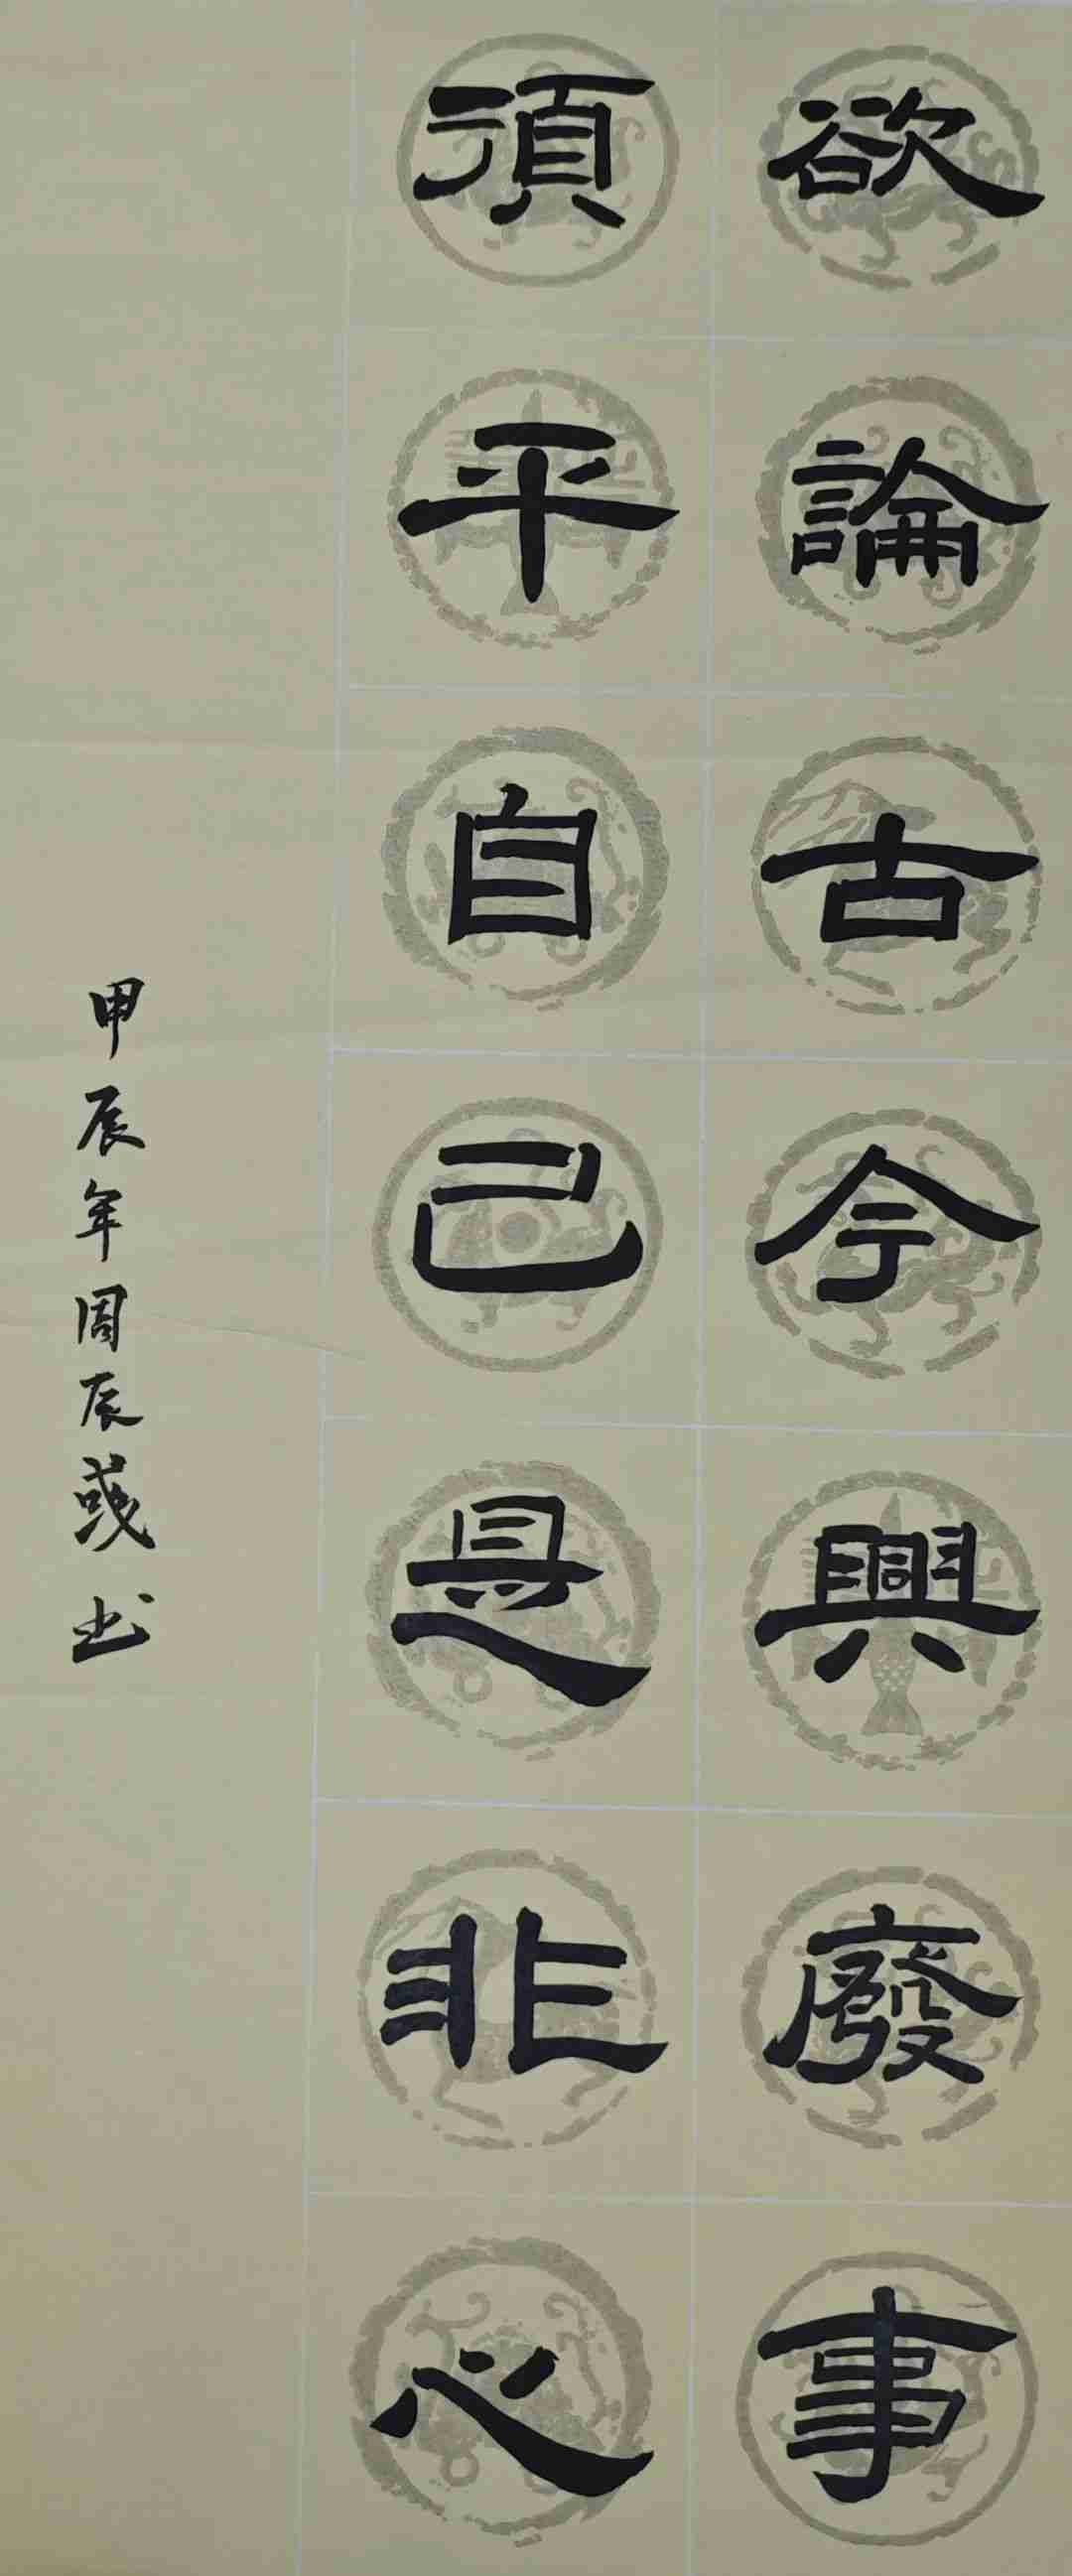 欲論古今興廢事
須平自己是非心
甲辰年周辰彧书